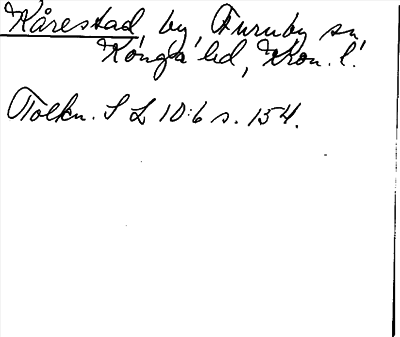 Kårestad, by, Furuby sn,
Konga hd, Kron. l.
Tolkn. S L 10:6 s. 154.